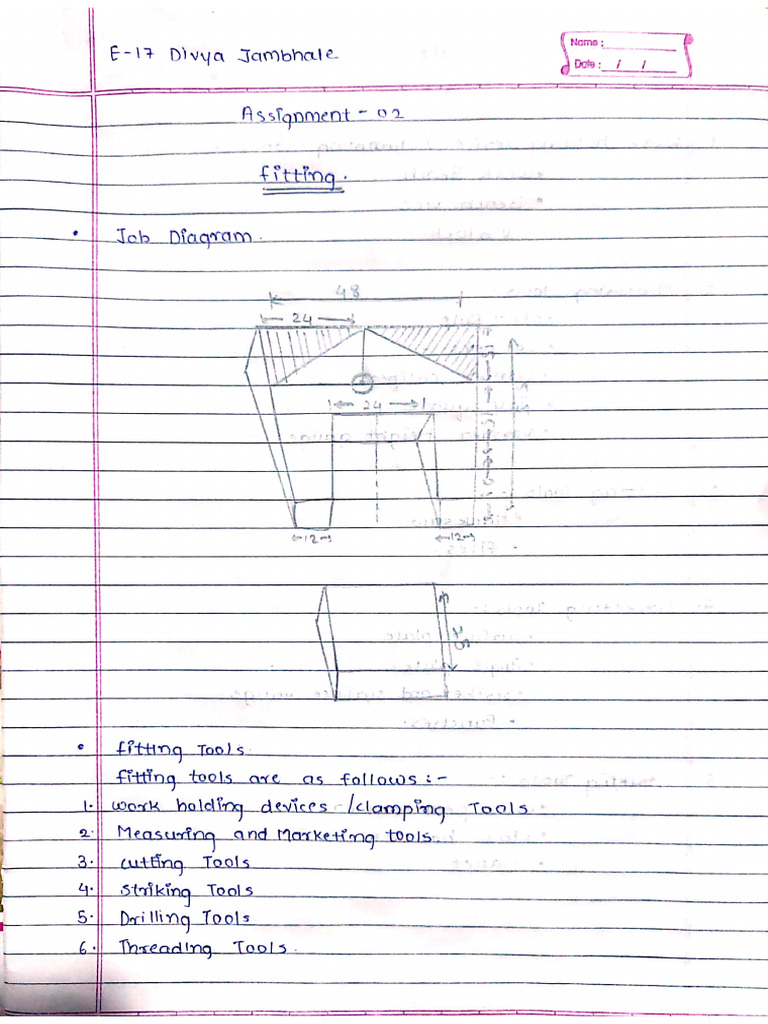 E-17 Divya Jambhale
Name :
Date : / /
Assignment - 02
Fitting.
• Job Diagram.
48
24
24
12
12
25
• Fitting Tools.
Fitting tools are as follows :-
1. Work holding devices / clamping Tools
2. Measuring and Marketing tools.
3. Cutting Tools
4. Striking Tools
5. Drilling Tools
6. Threading Tools.